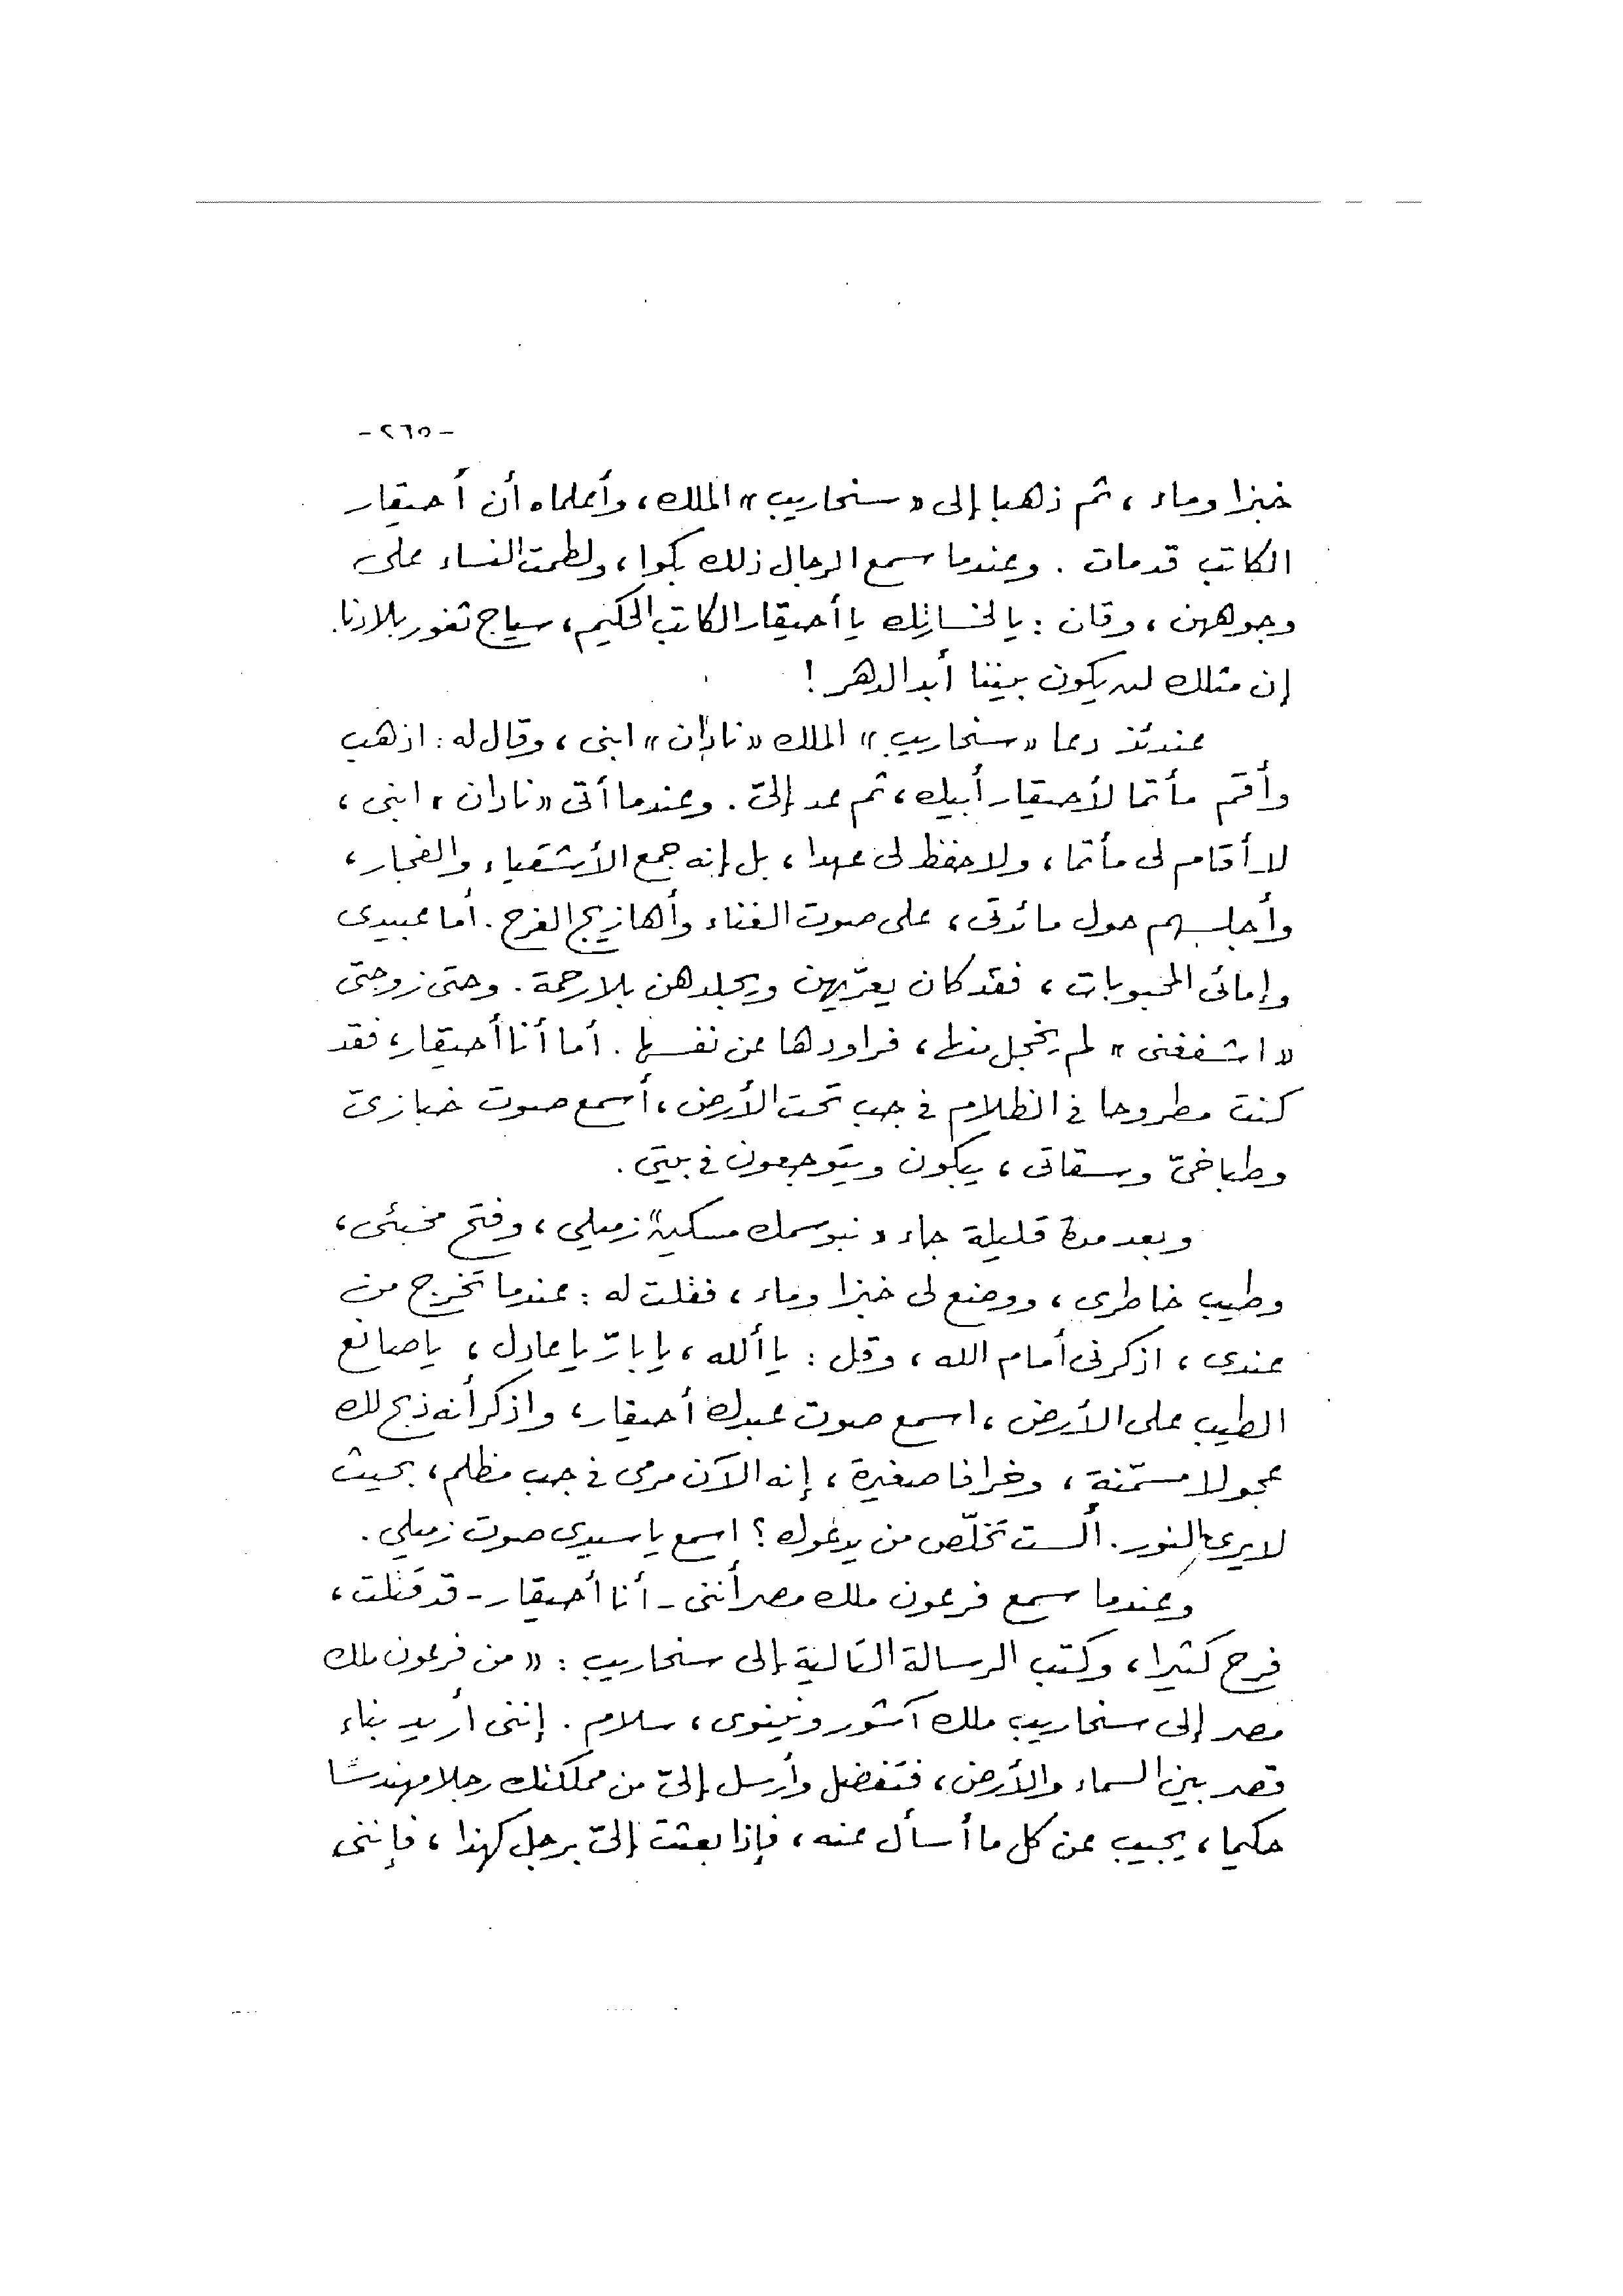 -٢٦٥-
خبزا وماء ، ثم ذهبا إلى «سنحاريب» الملك، وأعلماه أن أحيقار
الكاتب قد مات . وعندما سمع الرجال ذلك بكوا، ولطمت النساء على
وجوههن ، وقلن : يا لخسارتك يا أحيقار الكاتب الحكيم، سياج ثغور بلادنا.
إن مثلك لن يكون بيننا أبد الدهر !
عندئذ دعا «سنحاريب» الملك «نادان» ابنى ، وقال له : اذهب
وأقم مأتما لأحيقار أبيك، ثم عد إلىّ . وعندما أتى «نادان» ابنى ،
لا أقام لى مأتما، ولا حفظ لى عهدا، بل إنه جمع الأشقياء والفجار،
وأجلسهم حول مائدتى، على صوت الغناء وأهازيج الفرح . أما عبيدى
وإمائى المحبوبات ، فقد كان يعرّيهن ويجلدهن بلا رحمة . وحتى زوجتى
«اشفغنى» لم يخجل منها، فراودها عن نفسها . أما أنا أحيقار، فقد
كنت مطروحا فى الظلام فى جب تحت الأرض، أسمع صوت خبازىّ
وطباخىّ وسقاتى، يبكون ويتوجعون فى بيتى .
وبعد مدة قليلة جاء «نبوسمك مسكين» زميلى، وفتح مخبئى،
وطيب خاطرى، ووضع لى خبزا وماء، فقلت له : عندما تخرج من
عندى، اذكرنى أمام الله، وقل : يا ألله، يا بارّ يا عادل، يا صانع
الطيب على الأرض، اسمع صوت عبدك أحيقار، واذكر أنه ذبح لك
عجولا مسمّنة، وخرافا صغيرة، إنه الآن مرمى فى جب مظلم، بحيث
لا يرى النور. ألست تخلّص من يدعوك؟ اسمع يا سيدى صوت زميلى .
وعندما سمع فرعون ملك مصر أننى - أنا أحيقار - قد قتلت،
فرح كثيرا، وكتب الرسالة التالية إلى سنحاريب : «من فرعون ملك
مصر إلى سنحاريب ملك آشور ونينوى، سلام . إننى أريد بناء
قصر بين السماء والأرض، فتفضل وأرسل إلىّ من مملكتك رجلا مهندسًا
حكيما، يجيب عن كل ما أسأل عنه، فإذا بعثت إلىّ برجل كهذا، فإننى